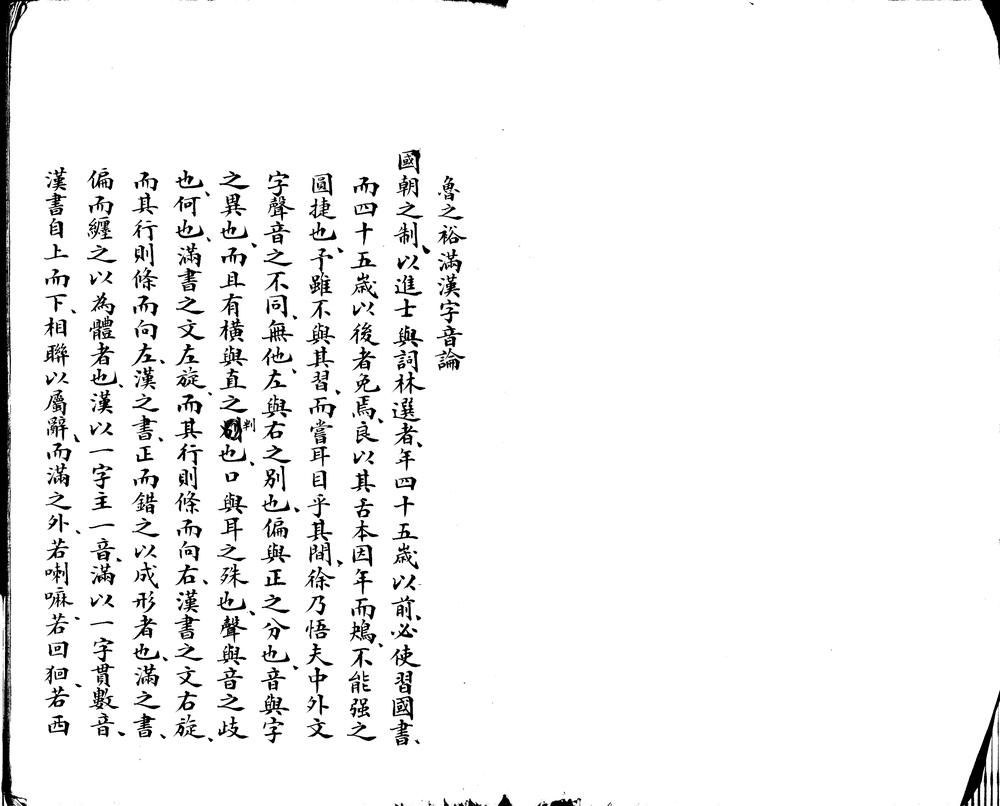 魯之裕滿漢字音論
國朝之制、以進士與詞林選者、年四十五歲以前、必使習國書、
而四十五歲以後者免焉、良以其舌本因年而鴂、不能强之
圓捷也、予雖不與其習、而嘗耳目乎其間、徐乃悟夫中外文
字聲音之不同、無他、左與右之別也、偏與正之分也、音與字
之異也、而且有橫與直之判也、口與耳之殊也、聲與音之歧
也、何也、滿書之文左旋、而其行則條而向右、漢書之文右旋、
而其行則條而向左、漢之書、正而錯之以成形者也、滿之書、
偏而纏之以為體者也、漢以一字主一音、滿以一字貫數音、
漢書自上而下、相聯以屬辭、而滿之外、若喇嘛、若回狥、若西